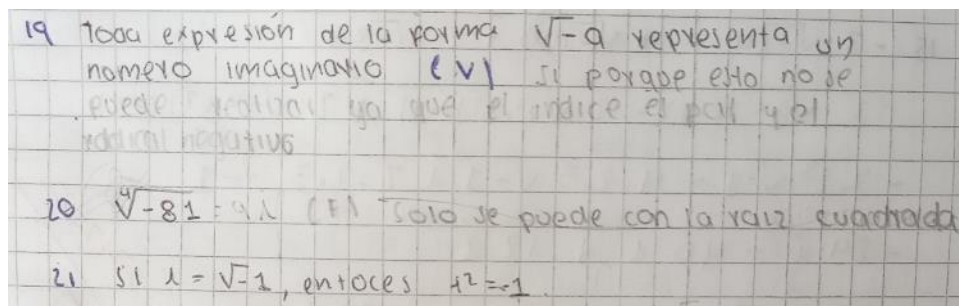 19 Toda expresión de la forma √-a representa un
nomero imaginario (V) si porqoe esto no se
puede realizar ya que el indice es par y el
radical negativo
20 ∜-81 = 9i (F) Solo se puede con la raiz cuadrada
21 si i = √-1, entoces i² = -1.